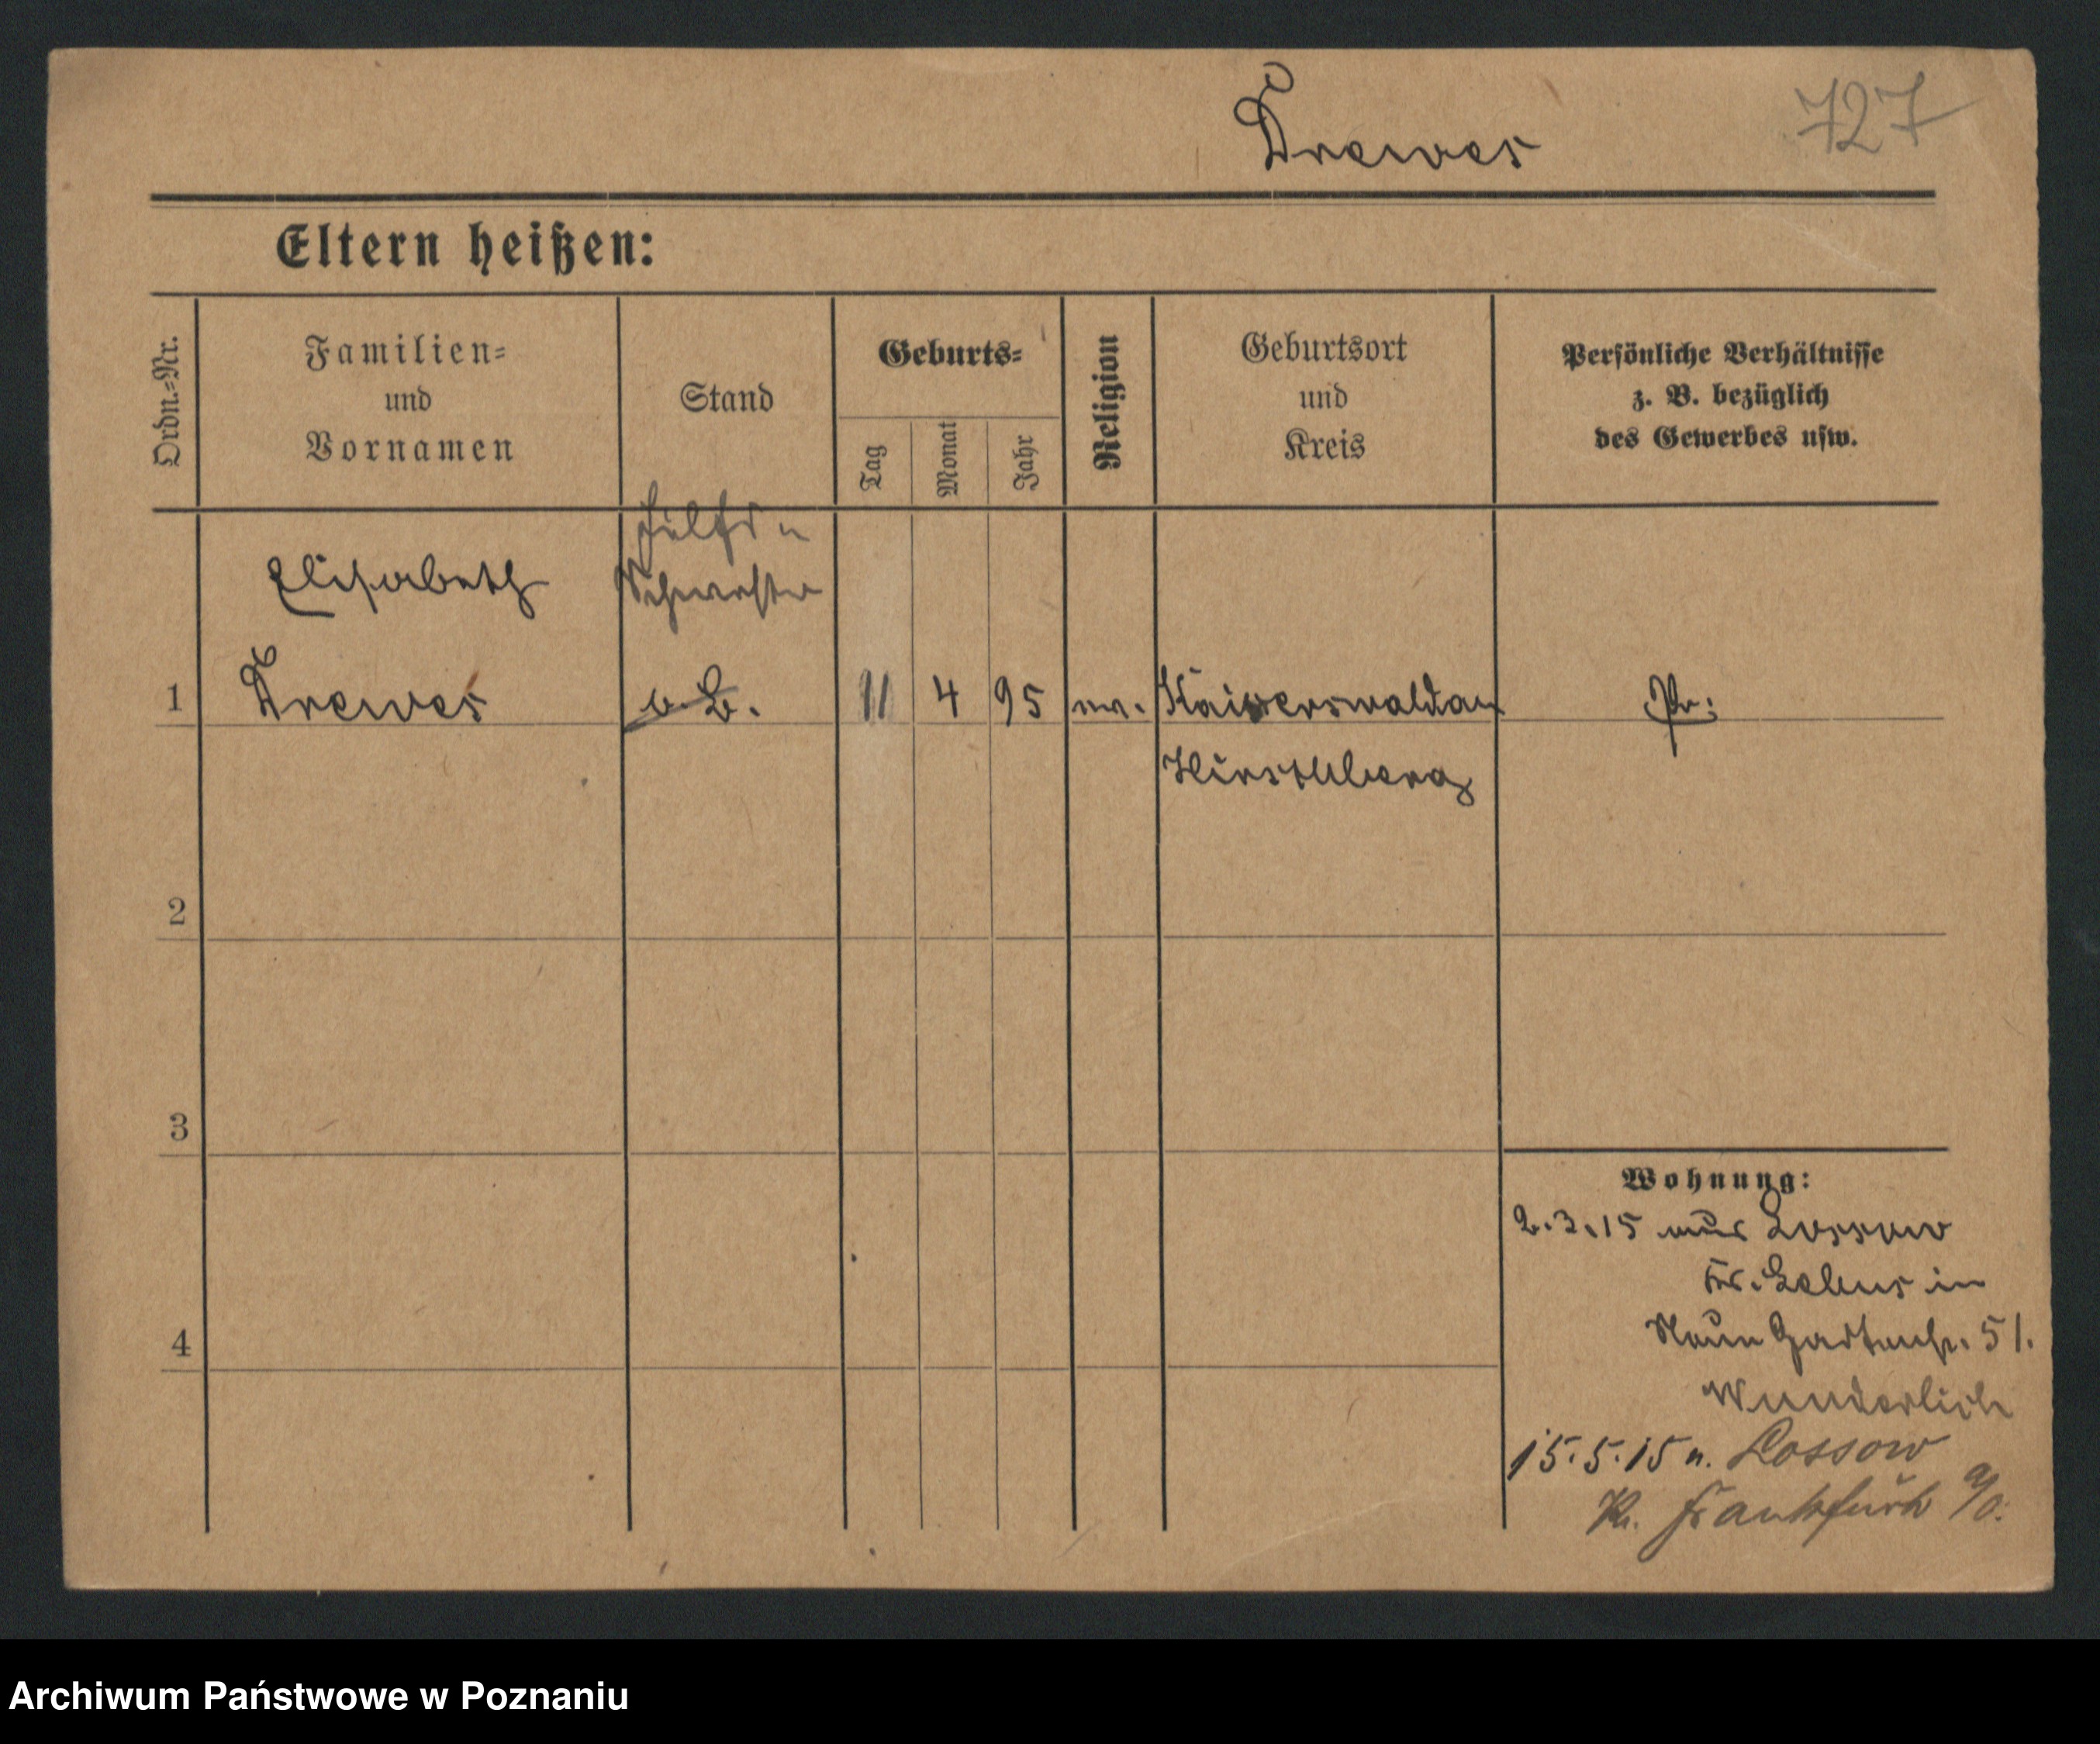 Drewes
727
Eltern heißen:
Ordn.-Nr.
Familien-
und
Vornamen
Stand
Geburts-
Tag
Monat
Jahr
Religion
Geburtsort
und
Kreis
Persönliche Verhältnisse
z. B. bezüglich
des Gewerbes usw.
Hilfs
Elisabeth
Schwester
1
Drewes
o. B.
11
4
95
ev.
Kaiserswaldau
Pr:
Hirschberg
2
3
4
Wohnung:
2.3.15 aus Lossow
Kr. Lebus in
Neue Gartenstr. 51.
Wunderlich
15.5.15 n. Lossow
Kr. Frankfurt a/O.
Archiwum Państwowe w Poznaniu